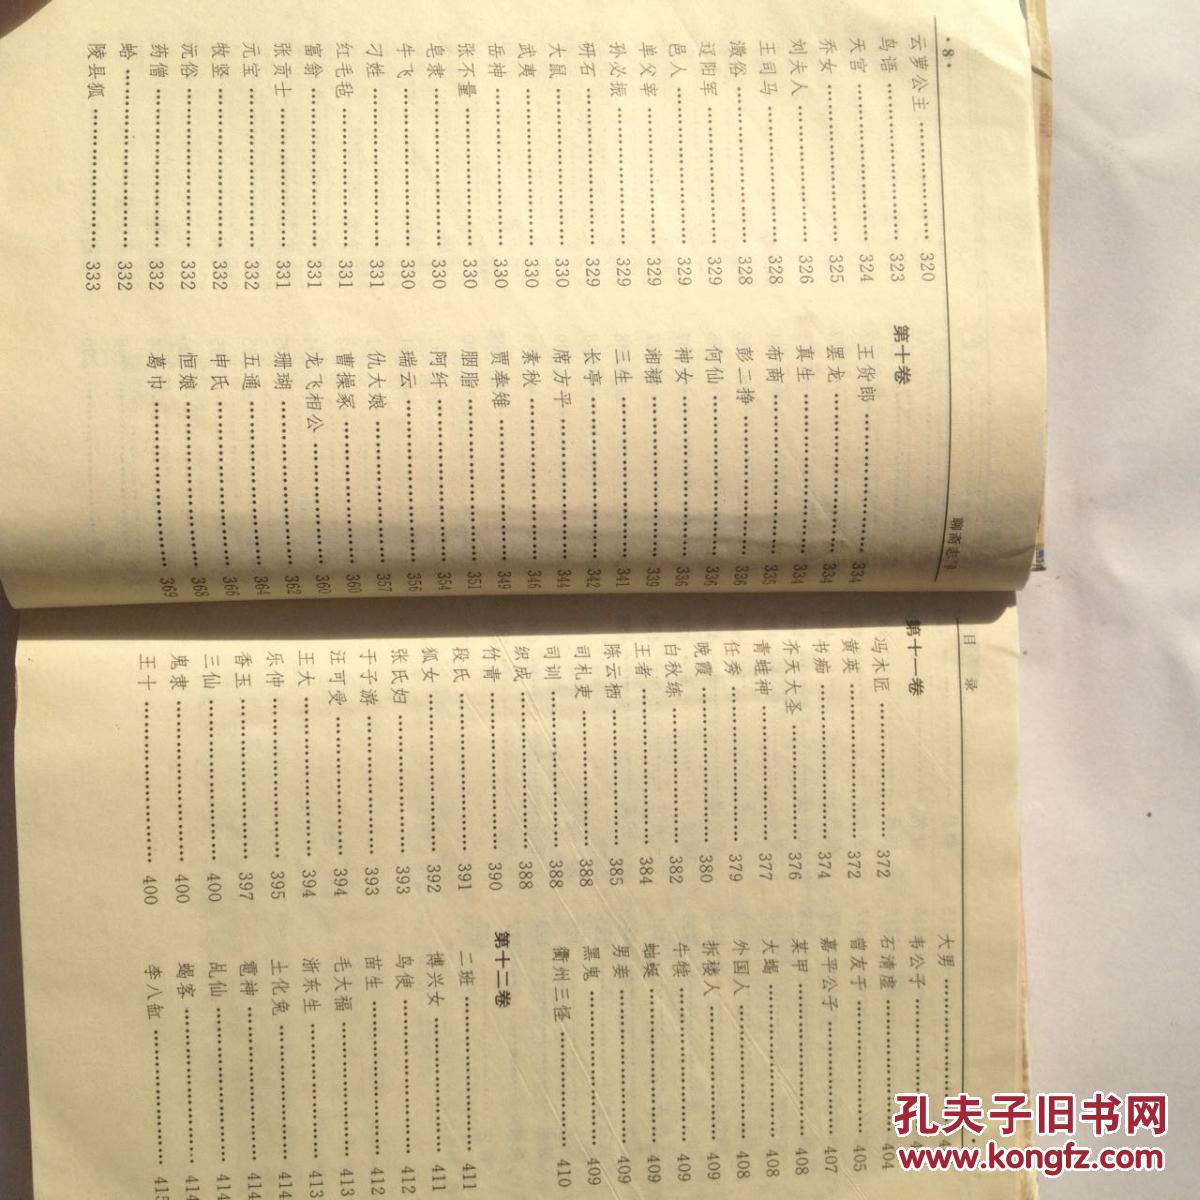 ·8·
聊斋志异
云萝公主…………320
鸟语…………323
天宫…………324
乔女…………325
刘夫人…………326
王司马…………328
澂俗…………328
辽阳军…………329
邑人…………329
单父宰…………329
孙必振…………329
研石…………329
大鼠…………330
武夷…………330
岳神…………330
张不量…………330
皂隶…………330
牛飞…………330
刁姓…………331
红毛毡…………331
富翁…………331
张贡士…………331
元宝…………332
牧竖…………332
沅俗…………332
药僧…………332
蛤…………332
陵县狐…………333
第十卷
王货郎…………334
罢龙…………334
真生…………334
布商…………335
彭二挣…………336
何仙…………336
神女…………336
湘裙…………339
三生…………341
长亭…………342
席方平…………344
素秋…………346
贾奉雉…………349
胭脂…………351
阿纤…………354
瑞云…………356
仇大娘…………357
曹操冢…………360
龙飞相公…………360
珊瑚…………362
五通…………364
申氏…………366
恒娘…………368
葛巾…………369
目 录
第十一卷
冯木匠…………372
黄英…………372
书痴…………374
齐天大圣…………376
青蛙神…………377
任秀…………379
晚霞…………380
白秋练…………382
王者…………384
陈云栖…………385
司札吏…………388
司训…………388
织成…………388
竹青…………390
段氏…………391
狐女…………392
张氏妇…………393
于子游…………393
汪可受…………394
王大…………394
乐仲…………395
香玉…………397
三仙…………400
鬼隶…………400
王十…………400
大男…………
韦公子…………
石清虚…………404
曾友于…………405
嘉平公子…………407
某甲…………408
大蝎…………408
外国人…………408
拆楼人…………409
牛犊…………409
蚰蜒…………409
男妾…………409
黑鬼…………409
衢州三怪…………410
第十二卷
二班…………411
博兴女…………411
鸟使…………412
苗生…………412
毛大福…………413
浙东生…………413
土化兔…………414
雹神…………414
乩仙…………414
蝎客…………414
李八缸…………415
孔夫子旧书网
www.kongfz.com